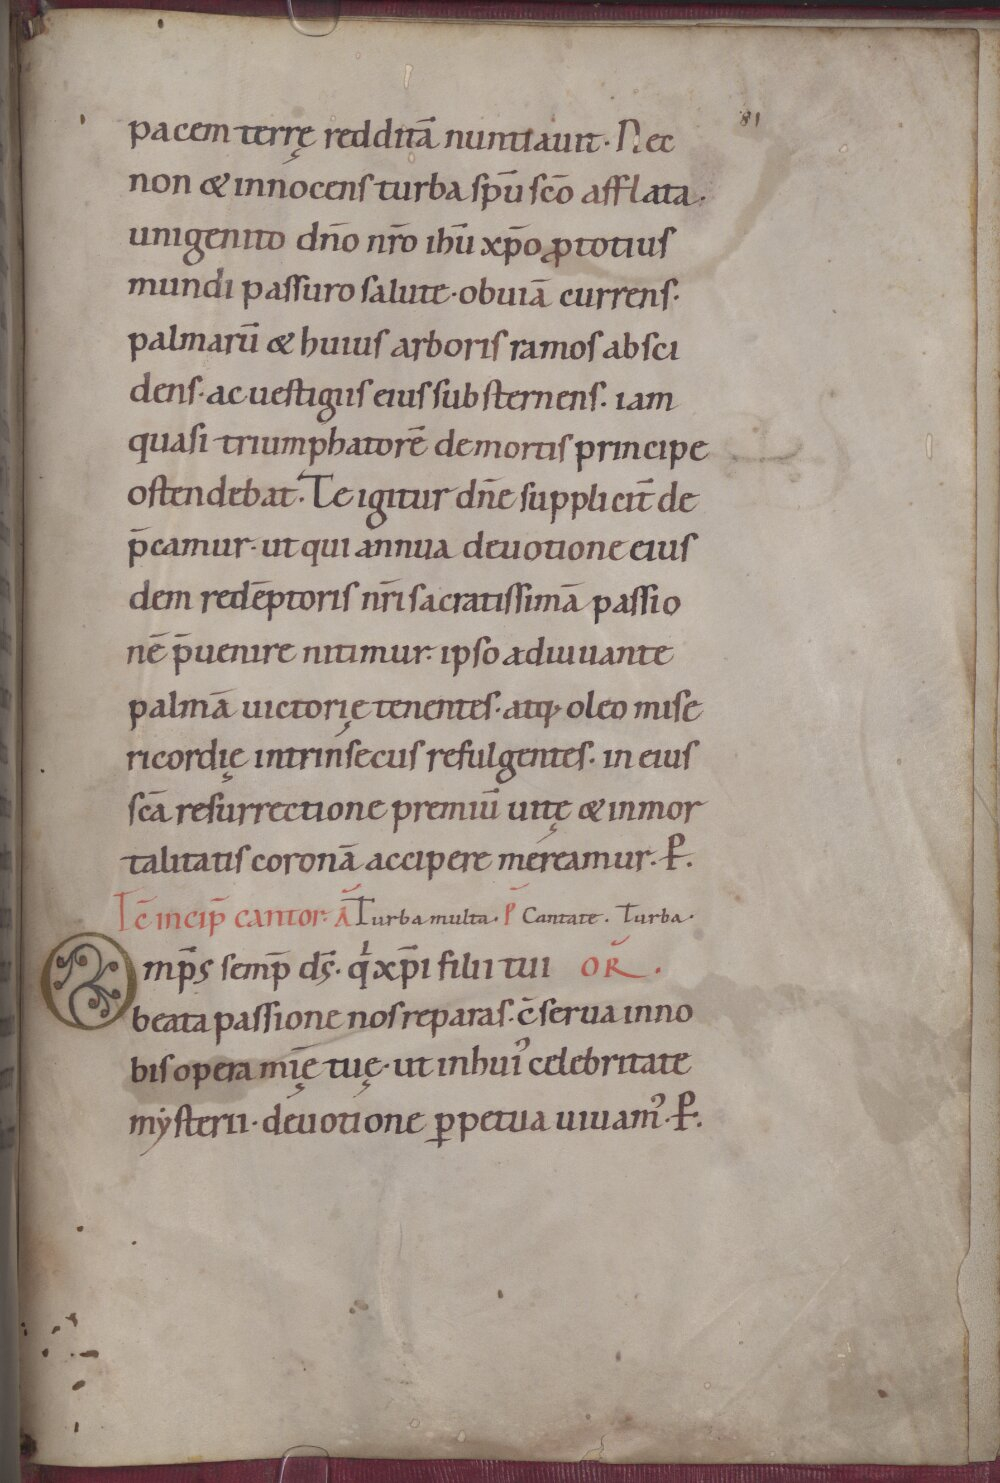 81
pacem terrę redditā nuntiauit. Nec
non & innocens turba spū scō afflata.
unigenito dn̄o nr̄o ihū xp̄o ꝓ totius
mundi passuro salute. obuiā currens.
palmarū & huius arboris ramos absci
dens. ac uestigiis eius substernens. iam
quasi triumphatorē de mortis principe
ostendebat. Te igitur dn̄e suppliciт̄ de
p̄camur. ut qui annua deuotione eius
dem redēptoris nr̄i sacratissimā passio
nē p̄uenire nitimur. ipso adiuuante
palmā uictorię tenentes. atq; oleo mise
ricordię intrinsecus refulgentes. in eius
scā resurrectione premiū uitę & inmor
talitatis coronā accipere mereamur. P.
Tc̄ incip̄ cantor. A̅ Turba multa. P̄ Cantate. Turba.
Omp̄s semp̄ ds̄. qͥ xp̄i filii tui OR̄.
beata passione nos reparas. c̄serua in no
bis opera mię tuę. ut in hui᾽ celebritate
mẏsterii. deuotione ꝑpetua uiuam᾽. P.